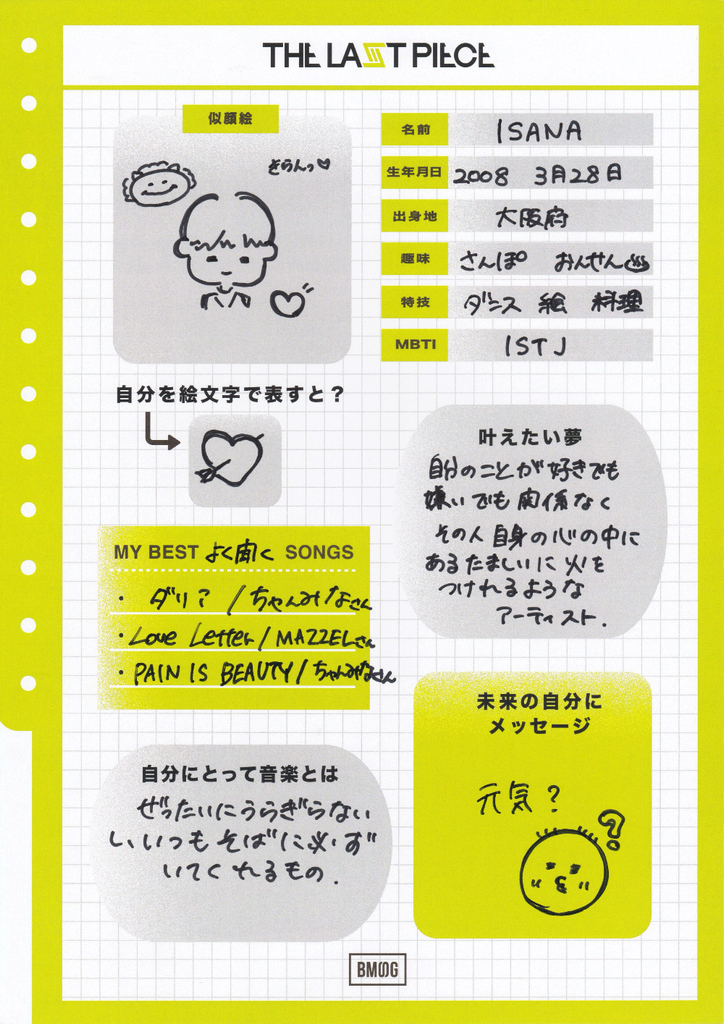 THE LAST PIECE
似顔絵
きらんっ♡
名前 ISANA
生年月日 2008 3月28日
出身地 大阪府
趣味 さんぽ おんせん♨
特技 ダンス 絵 料理
MBTI ISTJ
自分を絵文字で表すと?
叶えたい夢
自分のことが好きでも
嫌いでも関係なく
その人自身の心の中に
あるたましいに火を
つけれるような
アーティスト.
MY BEST よく聞く SONGS
・ダリア/ちゃんみなさん
・Love Letter/MAZZELさん
・PAIN IS BEAUTY/ちゃんみなさん
未来の自分に
メッセージ
元気?
?
自分にとって音楽とは
ぜったいにうらぎらない
し、いつもそばに必ず
いてくれるもの.
BMSG